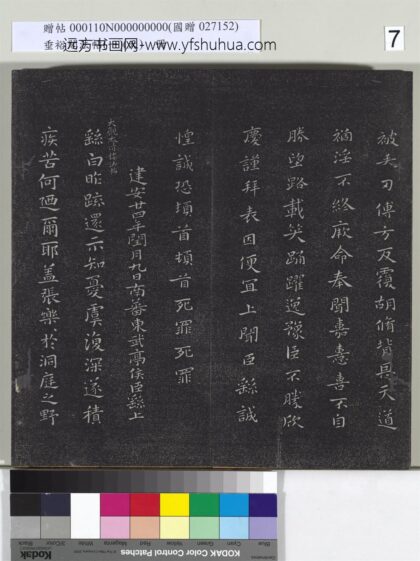 贈帖 000110N000000000(國贈 027152)
远方书画网-www.yfshuhua.com
7
被矢刃傅方反覆胡脩背恩天道
禍淫不終厥命奉聞嘉憙喜不自
勝望路載笑踊躍逸豫臣不勝欣
慶謹拜表因便宜上聞臣繇誠
惶誠恐頓首頓首死罪死罪
建安廿四年閏月九日南蕃東武亭侯臣繇上
繇白昨疏還示知憂虞復深遂積
疾苦何迺爾耶蓋張樂於洞庭之野
Blue Cyan Green Yellow Red Magenta White 3/Color Black
KODAK Color Control Patches
Kodak